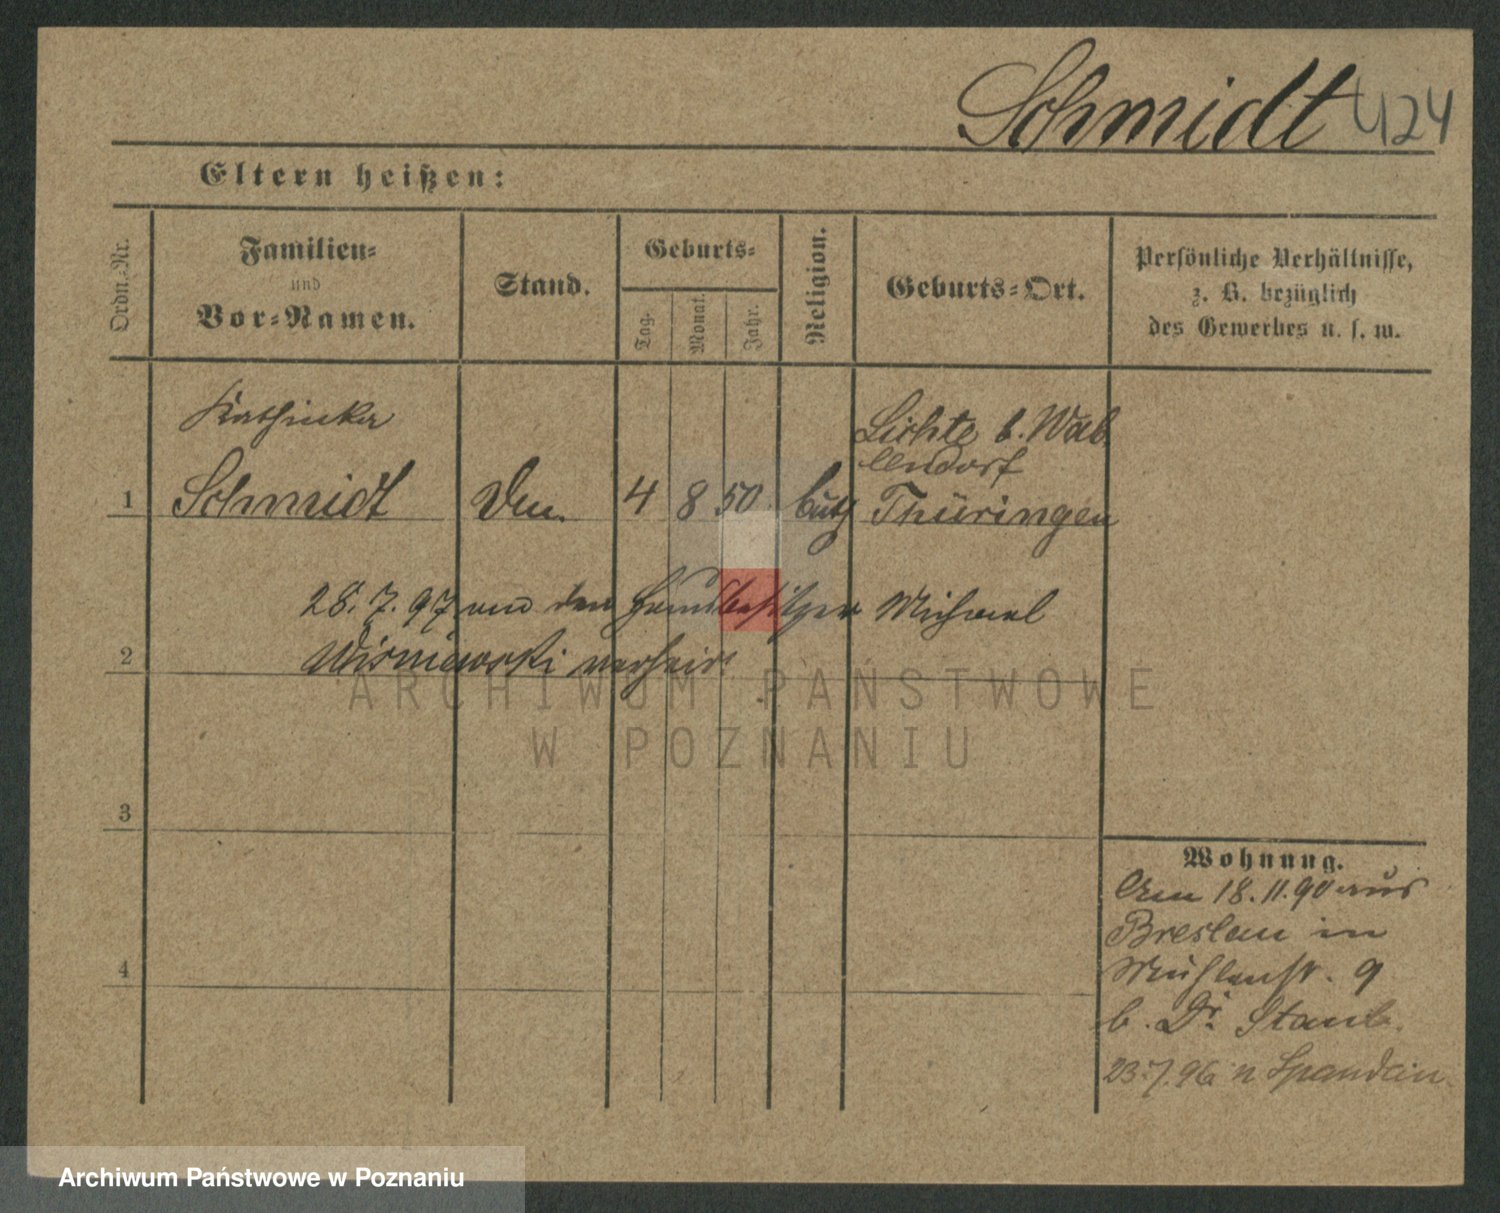 Schmidt 424
Eltern heißen:
Ordn.-Nr.
Familien-
und
Vor-Namen.
Stand.
Geburts-
Tag.
Monat.
Jahr.
Religion.
Geburts-Ort.
Persönliche Verhältnisse,
z. B. bezüglich
des Gewerbes u. s. w.
Kathinka
Lichte b. Wal
lendorf
1 Schmidt 4 8 50 Thüringen
28. 7. 97 den Hausbesitzer Michael
2 Wisniewski verheir.
ARCHIWUM PAŃSTWOWE
W POZNANIU
3
4
Wohnung.
Am 18. 11. 90 aus
Breslau in
Mühlenstr. 9
b. Dr. Staub.
23. 7. 96 n Spandau
Archiwum Państwowe w Poznaniu